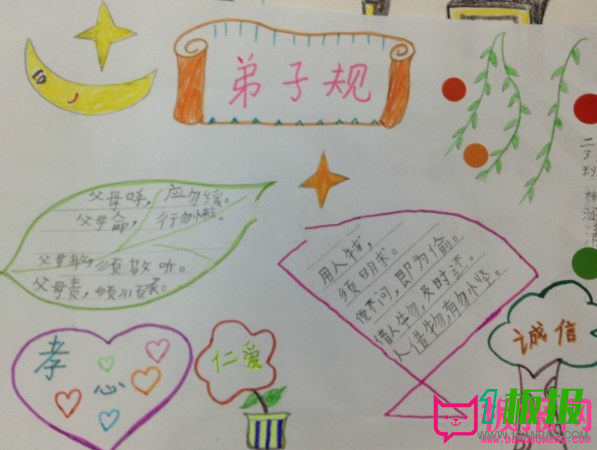 弟子规
二3班
父母呼，应勿缓。
父母命，行勿懒。
父母教，须敬听。
父母责，须顺承。
用人物，
须明求。
倘不问，即为偷。
借人物，及时还。
人借物，有勿小坚。
孝心
仁爱
诚信
板报网